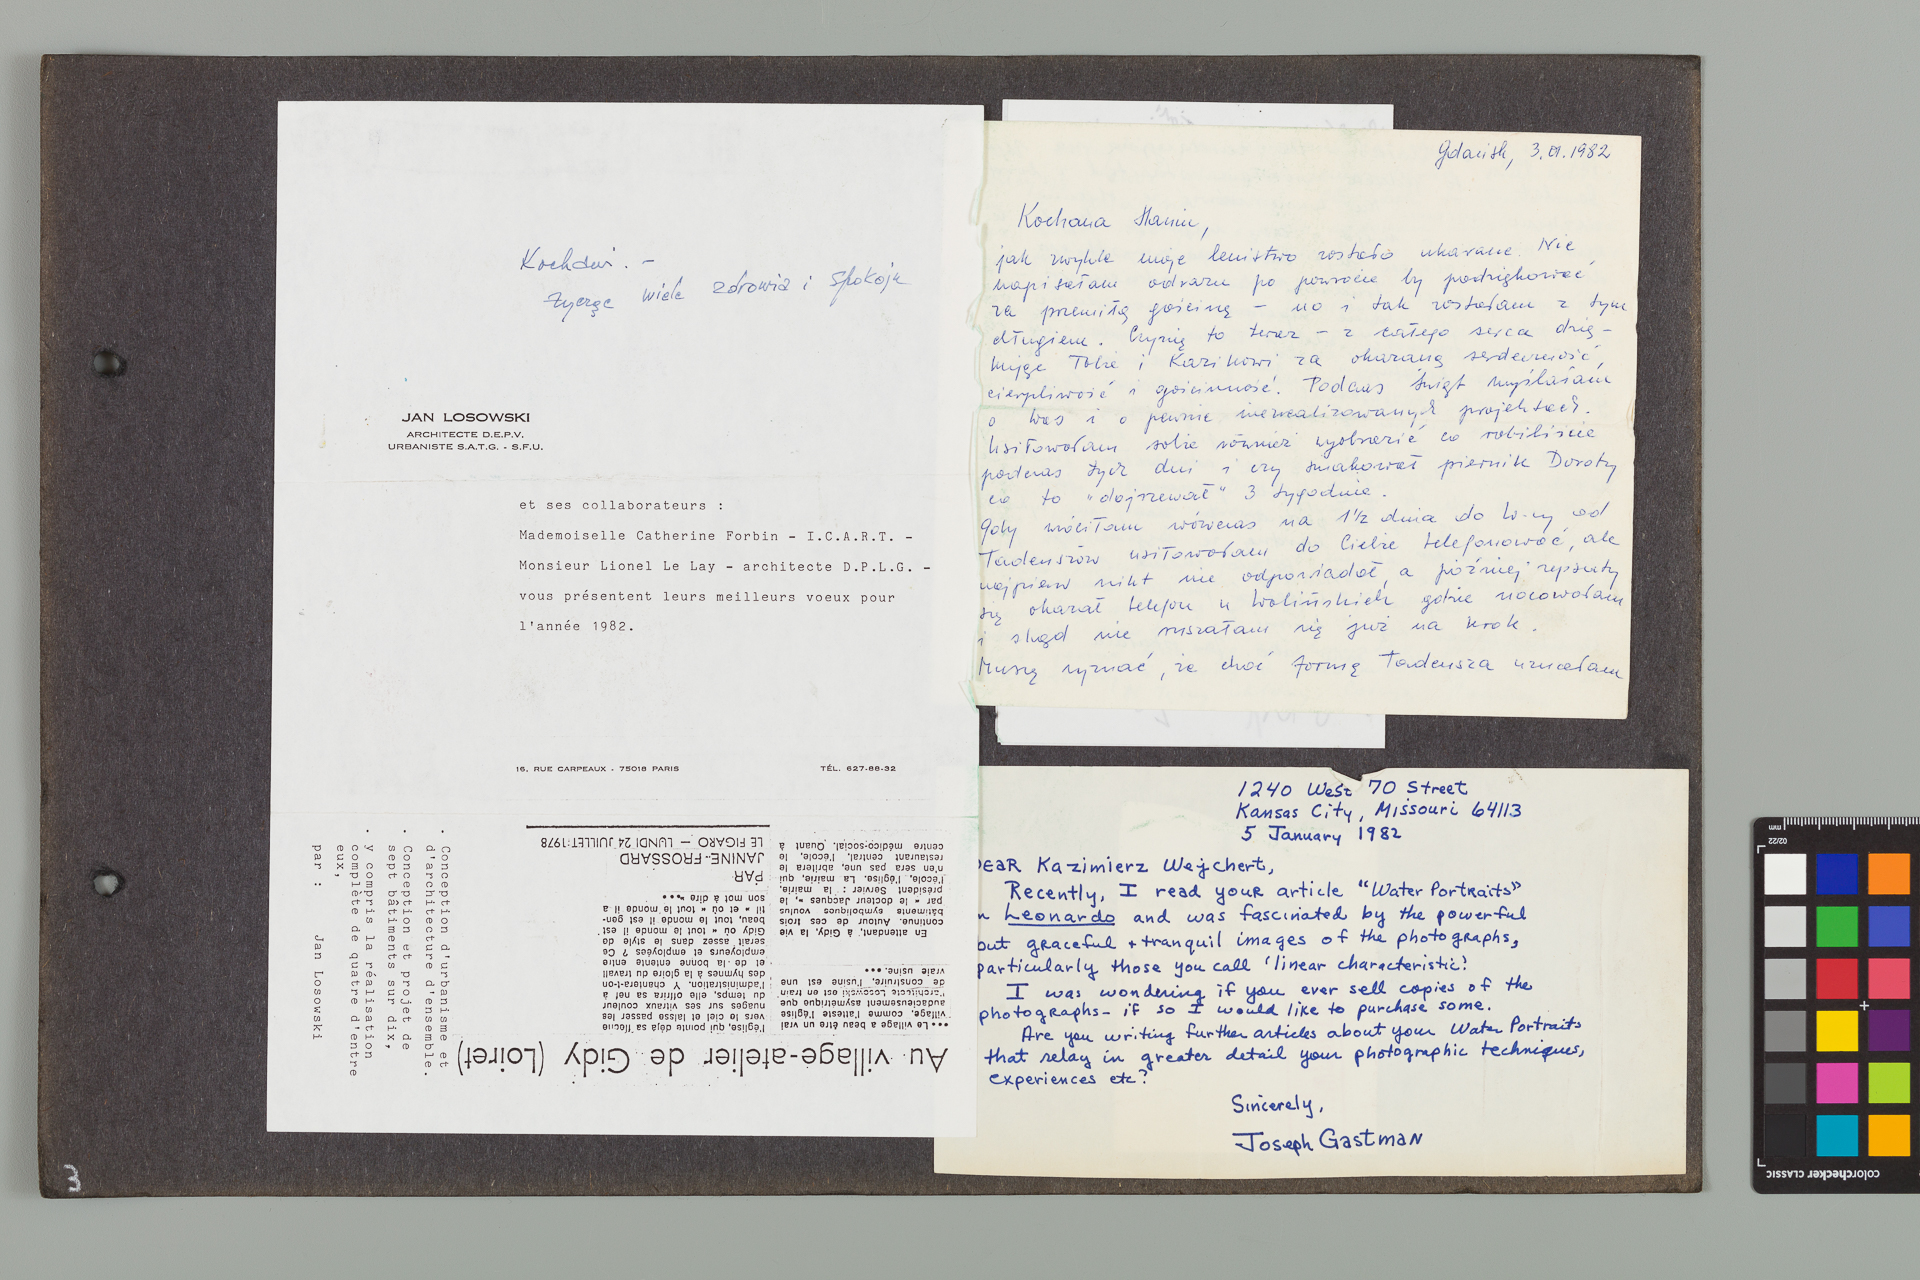 Kochani. -
życzę wiele zdrowia i spokoju
JAN LOSOWSKI
ARCHITECTE D.E.P.V.
URBANISTE S.A.T.G. - S.F.U.
et ses collaborateurs :
Mademoiselle Catherine Forbin - I.C.A.R.T. -
Monsieur Lionel Le Lay - architecte D.P.L.G. -
vous présentent leurs meilleurs voeux pour
l'année 1982.
16, RUE CARPEAUX - 75018 PARIS
TÉL. 627-88-32
Au village-atelier de Gidy (Loiret)
••• Le village a beau être un vrai
village, comme l'atteste l'église
audacieusement asymétrique que
l'architecte Losowski est en train
de construire, l'usine est une
vraie usine. •••
En attendant, à Gidy, la vie
continue. Autour de ces trois
bâtiments symboliques voulus
par « le docteur Jacques », le
président Servier : la mairie,
l'école, l'église. La mairie, qui
n'en sera pas une, abritera le
restaurant central, l'école, le
centre médico-social. Quant à
l'église, qui pointe déjà sa flèche
vers le ciel et laisse passer les
nuages sur ses vitraux couleur
du temps, elle offrira sa nef à
l'administration. Y chantera-t-on
des hymnes à la gloire du travail
et de la bonne entente entre
employeurs et employées ? Ce
serait assez dans le style de
Gidy où « tout le monde il est
beau, tout le monde il est gen-
til » et où « tout le monde il a
son mot à dire ». •••
PAR
JANINE FROSSARD
LE FIGARO — LUNDI 24 JUILLET 1978
. Conception d'urbanisme et
d'architecture d'ensemble.
. Conception et projet de
sept bâtiments sur dix,
. y compris la réalisation
complète de quatre d'entre
eux,
par : Jan Losowski
Gdańsk, 3.01.1982
Kochana Haniu,
jak zwykle moje lenistwo zostało ukarane. Nie
napisałam odrazu po powrocie by podziękować
za przemiłą gościnę - no i tak zostałam z tym
długiem. Czynię to teraz - z całego serca dzię-
kuję Tobie i Kazikowi za okazaną serdeczność,
cierpliwość i gościnność. Podczas świąt myślałam
o Was i o pewnie niezrealizowanych projektach.
Usiłowałam sobie również wyobrazić co robiliście
podczas tych dni i czy smakował piernik Doroty
co to "dojrzewał" 3 tygodnie.
Gdy wróciłam wówczas na 1½ dnia do W-wy od
Tadeuszów usiłowałam do Ciebie telefonować, ale
najpierw nikt nie odpowiadał, a później zepsuty
się okazał telefon u Wolińskich gdzie nocowałam
i skąd nie ruszałam się już na krok.
Muszę wyznać, że choć formę Tadeusza uznałam
1240 West 70 Street
Kansas City, Missouri 64113
5 January 1982
DEAR Kazimierz Wejchert,
Recently, I read your article "Water Portraits"
in Leonardo and was fascinated by the powerful
but graceful + tranquil images of the photographs,
particularly those you call 'linear characteristic'.
I was wondering if you ever sell copies of the
photographs - if so I would like to purchase some.
Are you writing further articles about your Water Portraits
that relay in greater detail your photographic techniques,
experiences etc?
Sincerely,
Joseph Gastman
3
mm
02/22
colorchecker CLASSIC